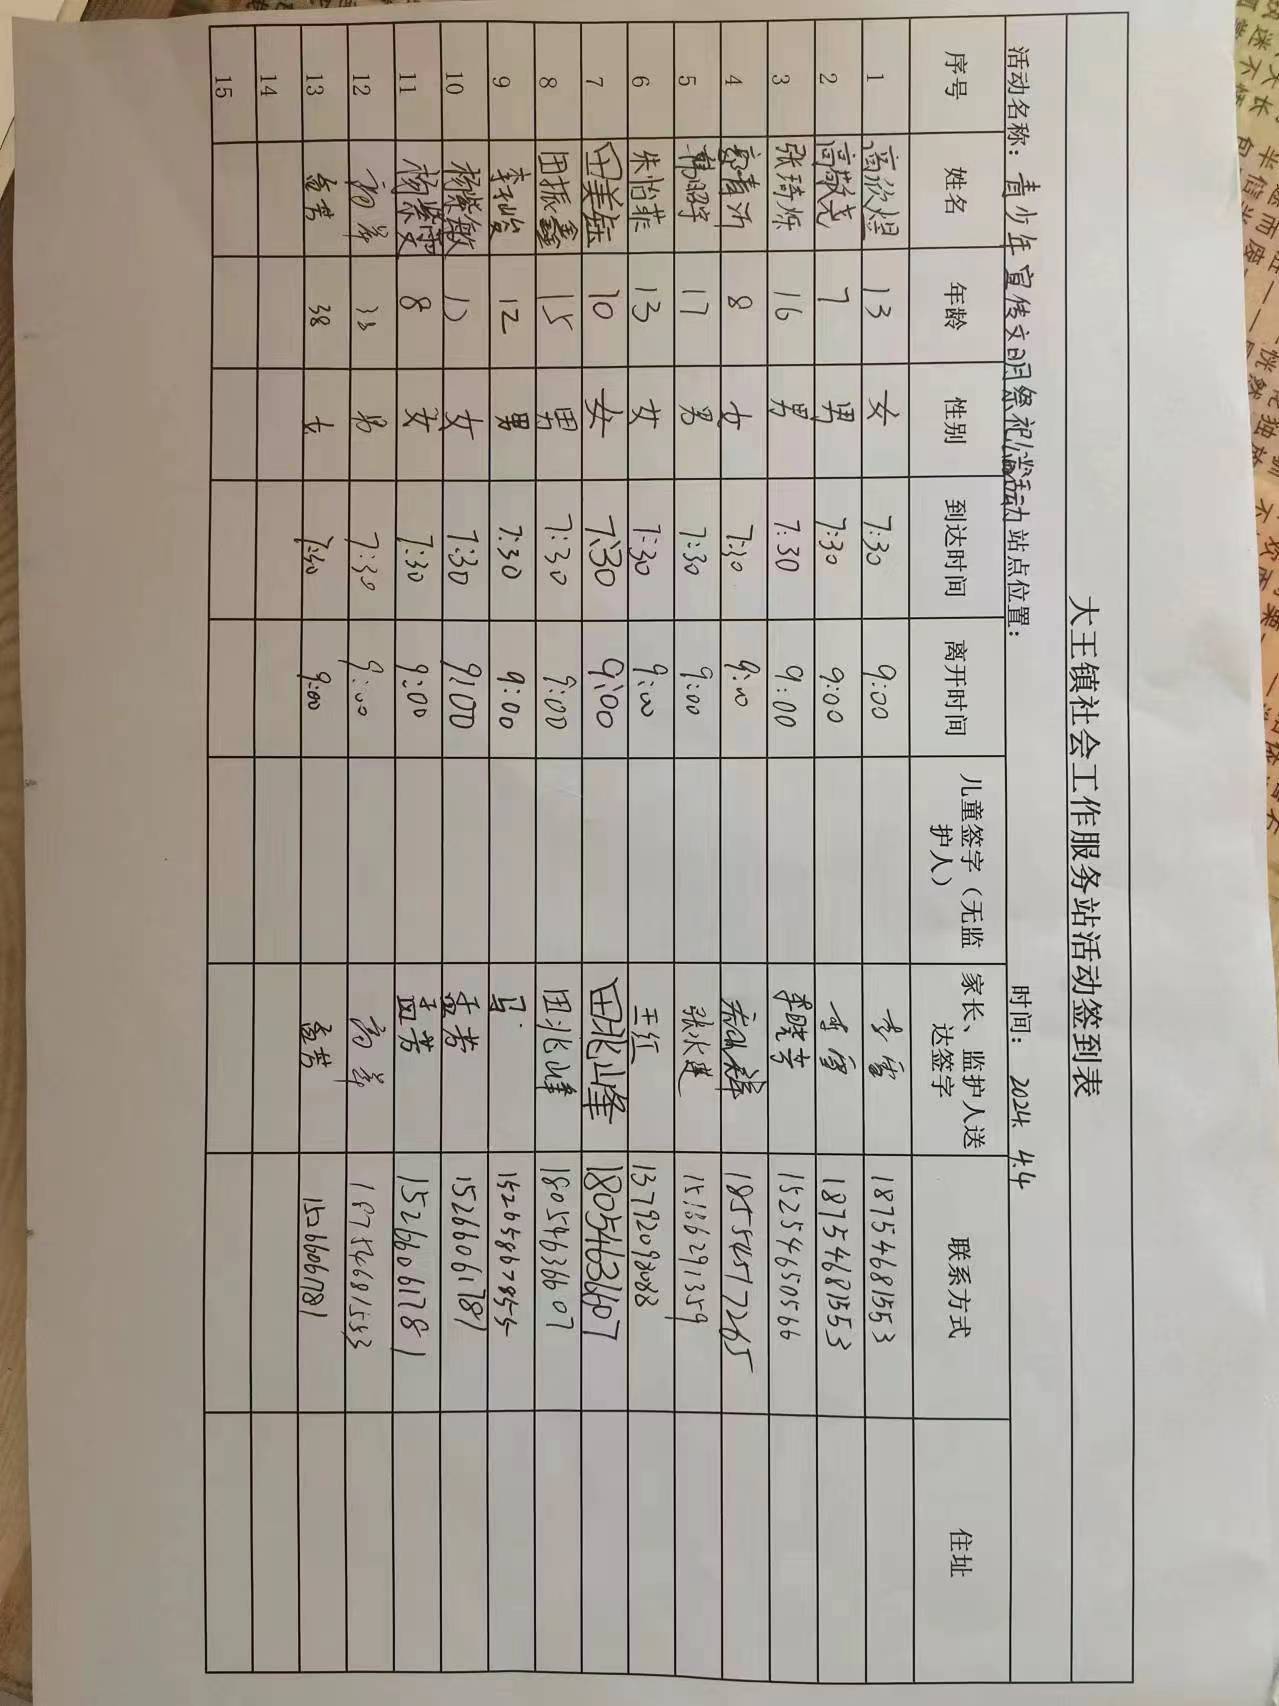 大王镇社会工作服务站活动签到表
活动名称：青少年宣传文明祭祀活动 站点位置： 时间：2024.4.4
序号 姓名 年龄 性别 到达时间 离开时间 儿童签字（无监护人） 家长、监护人送达签字 联系方式 住址
1 高欣煜 13 女 7:30 9:00 李雪 18754681553
2 高敬尧 7 男 7:30 9:00 李雪 18754681553
3 张琦烁 16 男 7:30 9:00 李晓芳 15254650566
4 8 女 7:30 9:00 18554517265
5 韩照宇 17 男 7:30 9:00 张水莲
6 朱怡菲 13 女 7:30 9:00 王红 13792092088
7 田美钰 10 女 7:30 9:00 田兆峰 18054636607
8 田振鑫 15 男 7:30 9:00 田兆峰 18054636607
9 12 男 7:30 9:00 15265867855
10 杨紫敏 女 7:30 9:00 孟芳 15266061781
11 杨紫雯 8 女 7:30 9:00 孟芳 15266061781
12 男 7:30 9:00 18754681553
13 孟芳 38 女 7:30 9:00 孟芳 15266061781
14
15